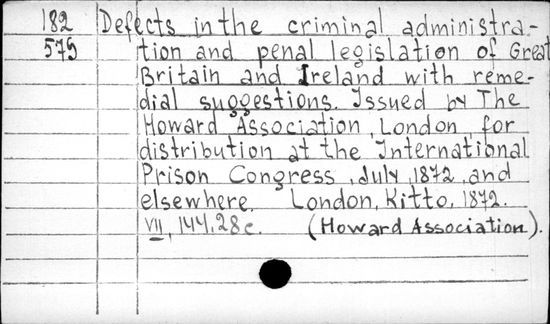 182 Defects in the criminal administra-
575 tion and penal legislation of Great
Britain and Ireland with reme-
dial suggestions. Issued by The
Howard Association, London, for
distribution at the International
Prison Congress, July, 1872, and
elsewhere. London, Kitto, 1872.
VII, 144, 28 c. (Howard Association).